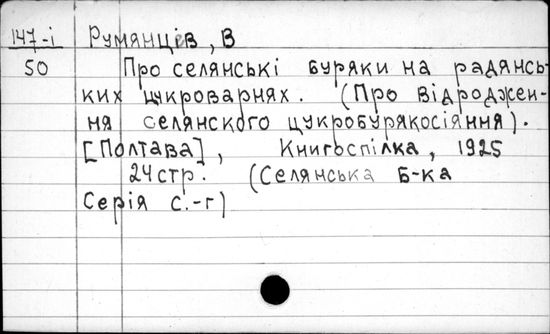 147-і Румянців, В
50 Про селянські буряки на радянсь-
ких цукроварнях. (Про відроджен-
ня селянского цукробурякосіяння).
[Полтава], Книгоспілка, 1925
24 стр. (Селянська Б-ка
Серія с.-г)